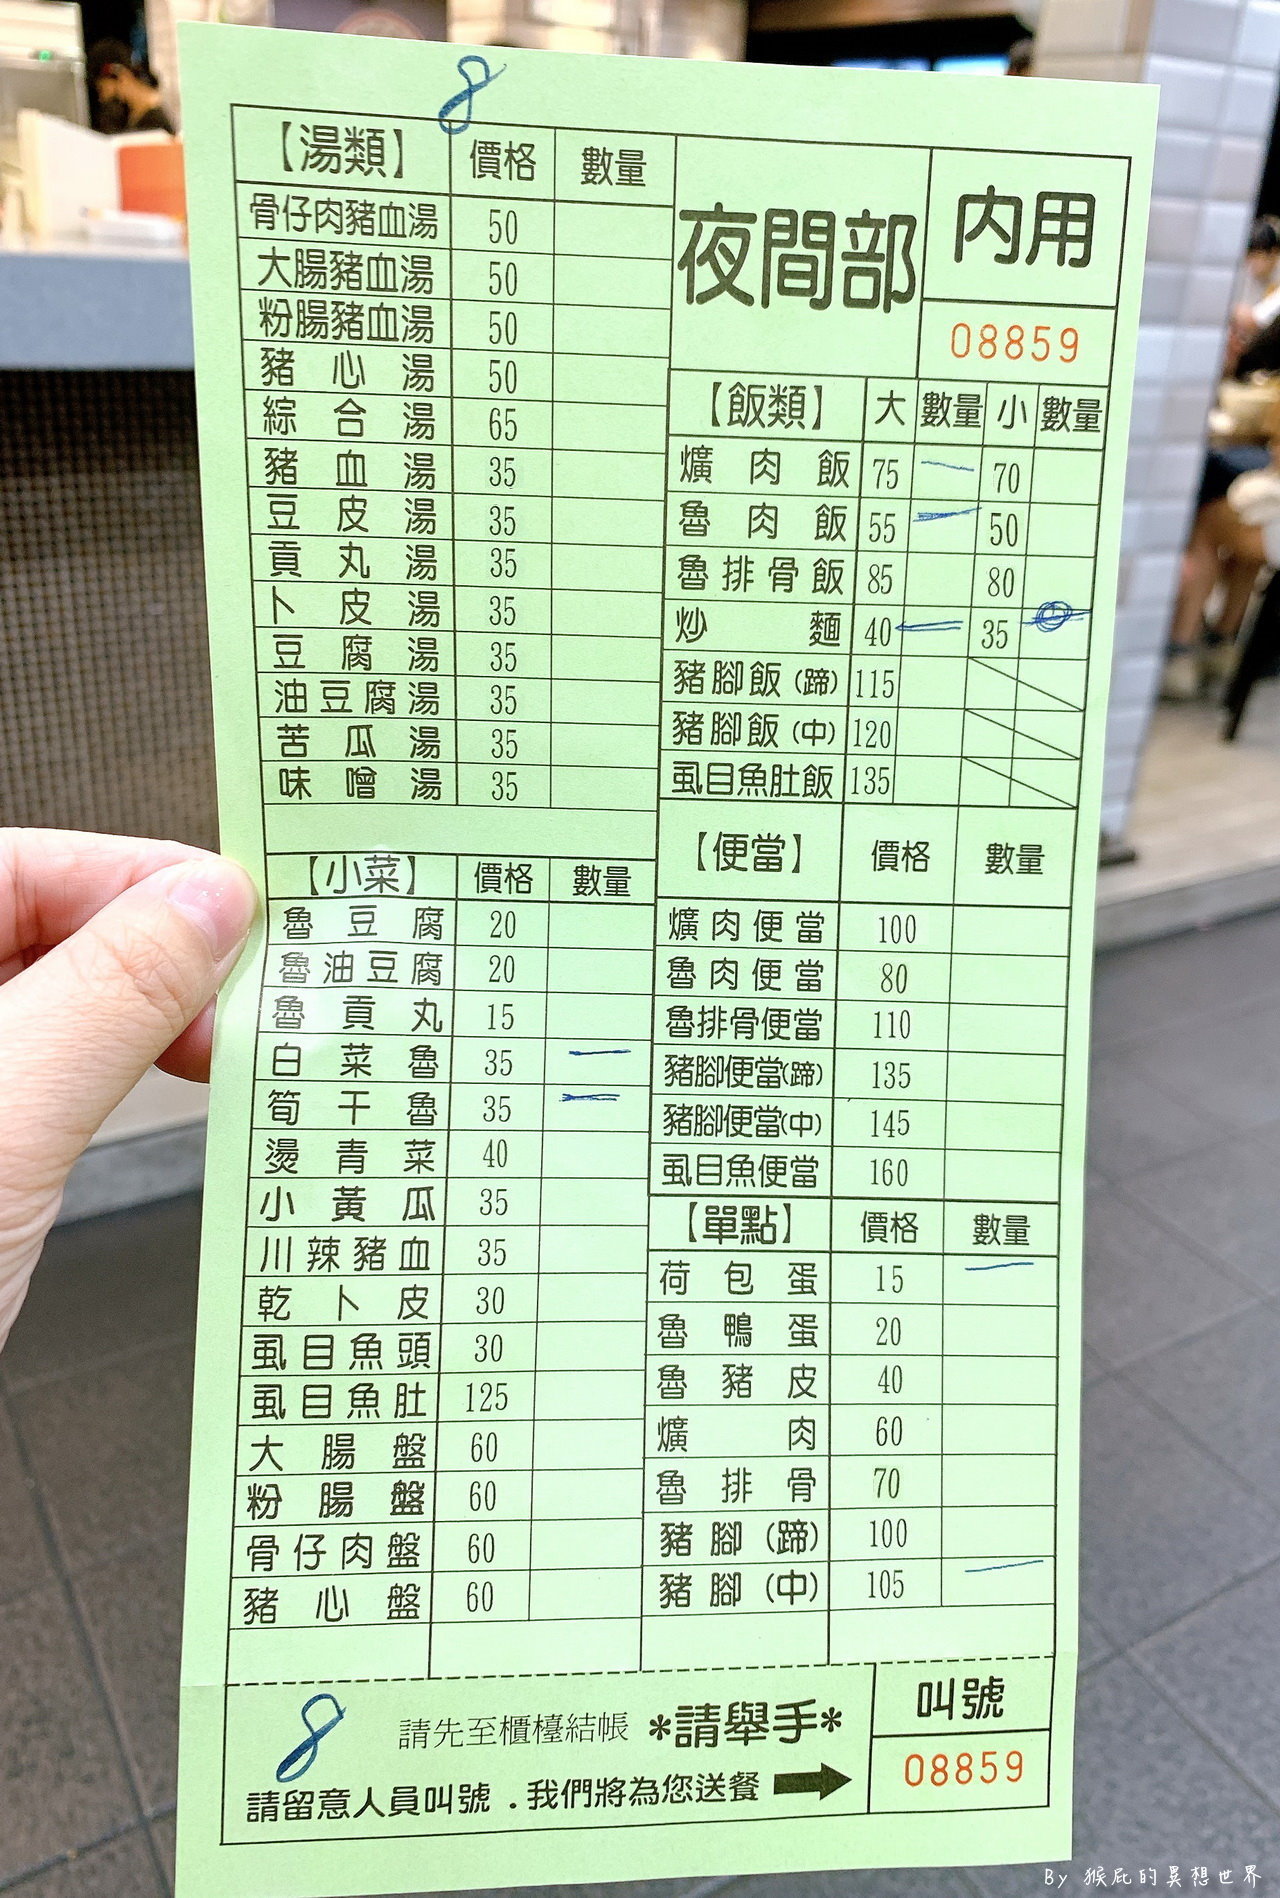 8
【湯類】 價格 數量
骨仔肉豬血湯 50
大腸豬血湯 50
粉腸豬血湯 50
豬心湯 50
綜合湯 65
豬血湯 35
豆皮湯 35
貢丸湯 35
卜皮湯 35
豆腐湯 35
油豆腐湯 35
苦瓜湯 35
味噌湯 35
【小菜】 價格 數量
魯豆腐 20
魯油豆腐 20
魯貢丸 15
白菜魯 35 一
筍干魯 35 一
燙青菜 40
小黃瓜 35
川辣豬血 35
乾卜皮 30
虱目魚頭 30
虱目魚肚 125
大腸盤 60
粉腸盤 60
骨仔肉盤 60
豬心盤 60
夜間部
內用
08859
【飯類】 大 數量 小 數量
爌肉飯 75 一 70
魯肉飯 55 一 50
魯排骨飯 85 80
炒麵 40 一 35
豬腳飯(蹄) 115
豬腳飯(中) 120
虱目魚肚飯 135
【便當】 價格 數量
爌肉便當 100
魯肉便當 80
魯排骨便當 110
豬腳便當(蹄) 135
豬腳便當(中) 145
虱目魚便當 160
【單點】 價格 數量
荷包蛋 15 一
魯鴨蛋 20
魯豬皮 40
爌肉 60
魯排骨 70
豬腳(蹄) 100
豬腳(中) 105 一
8
請先至櫃檯結帳 *請舉手*
請留意人員叫號．我們將為您送餐
叫號
08859
By 猴屁的異想世界